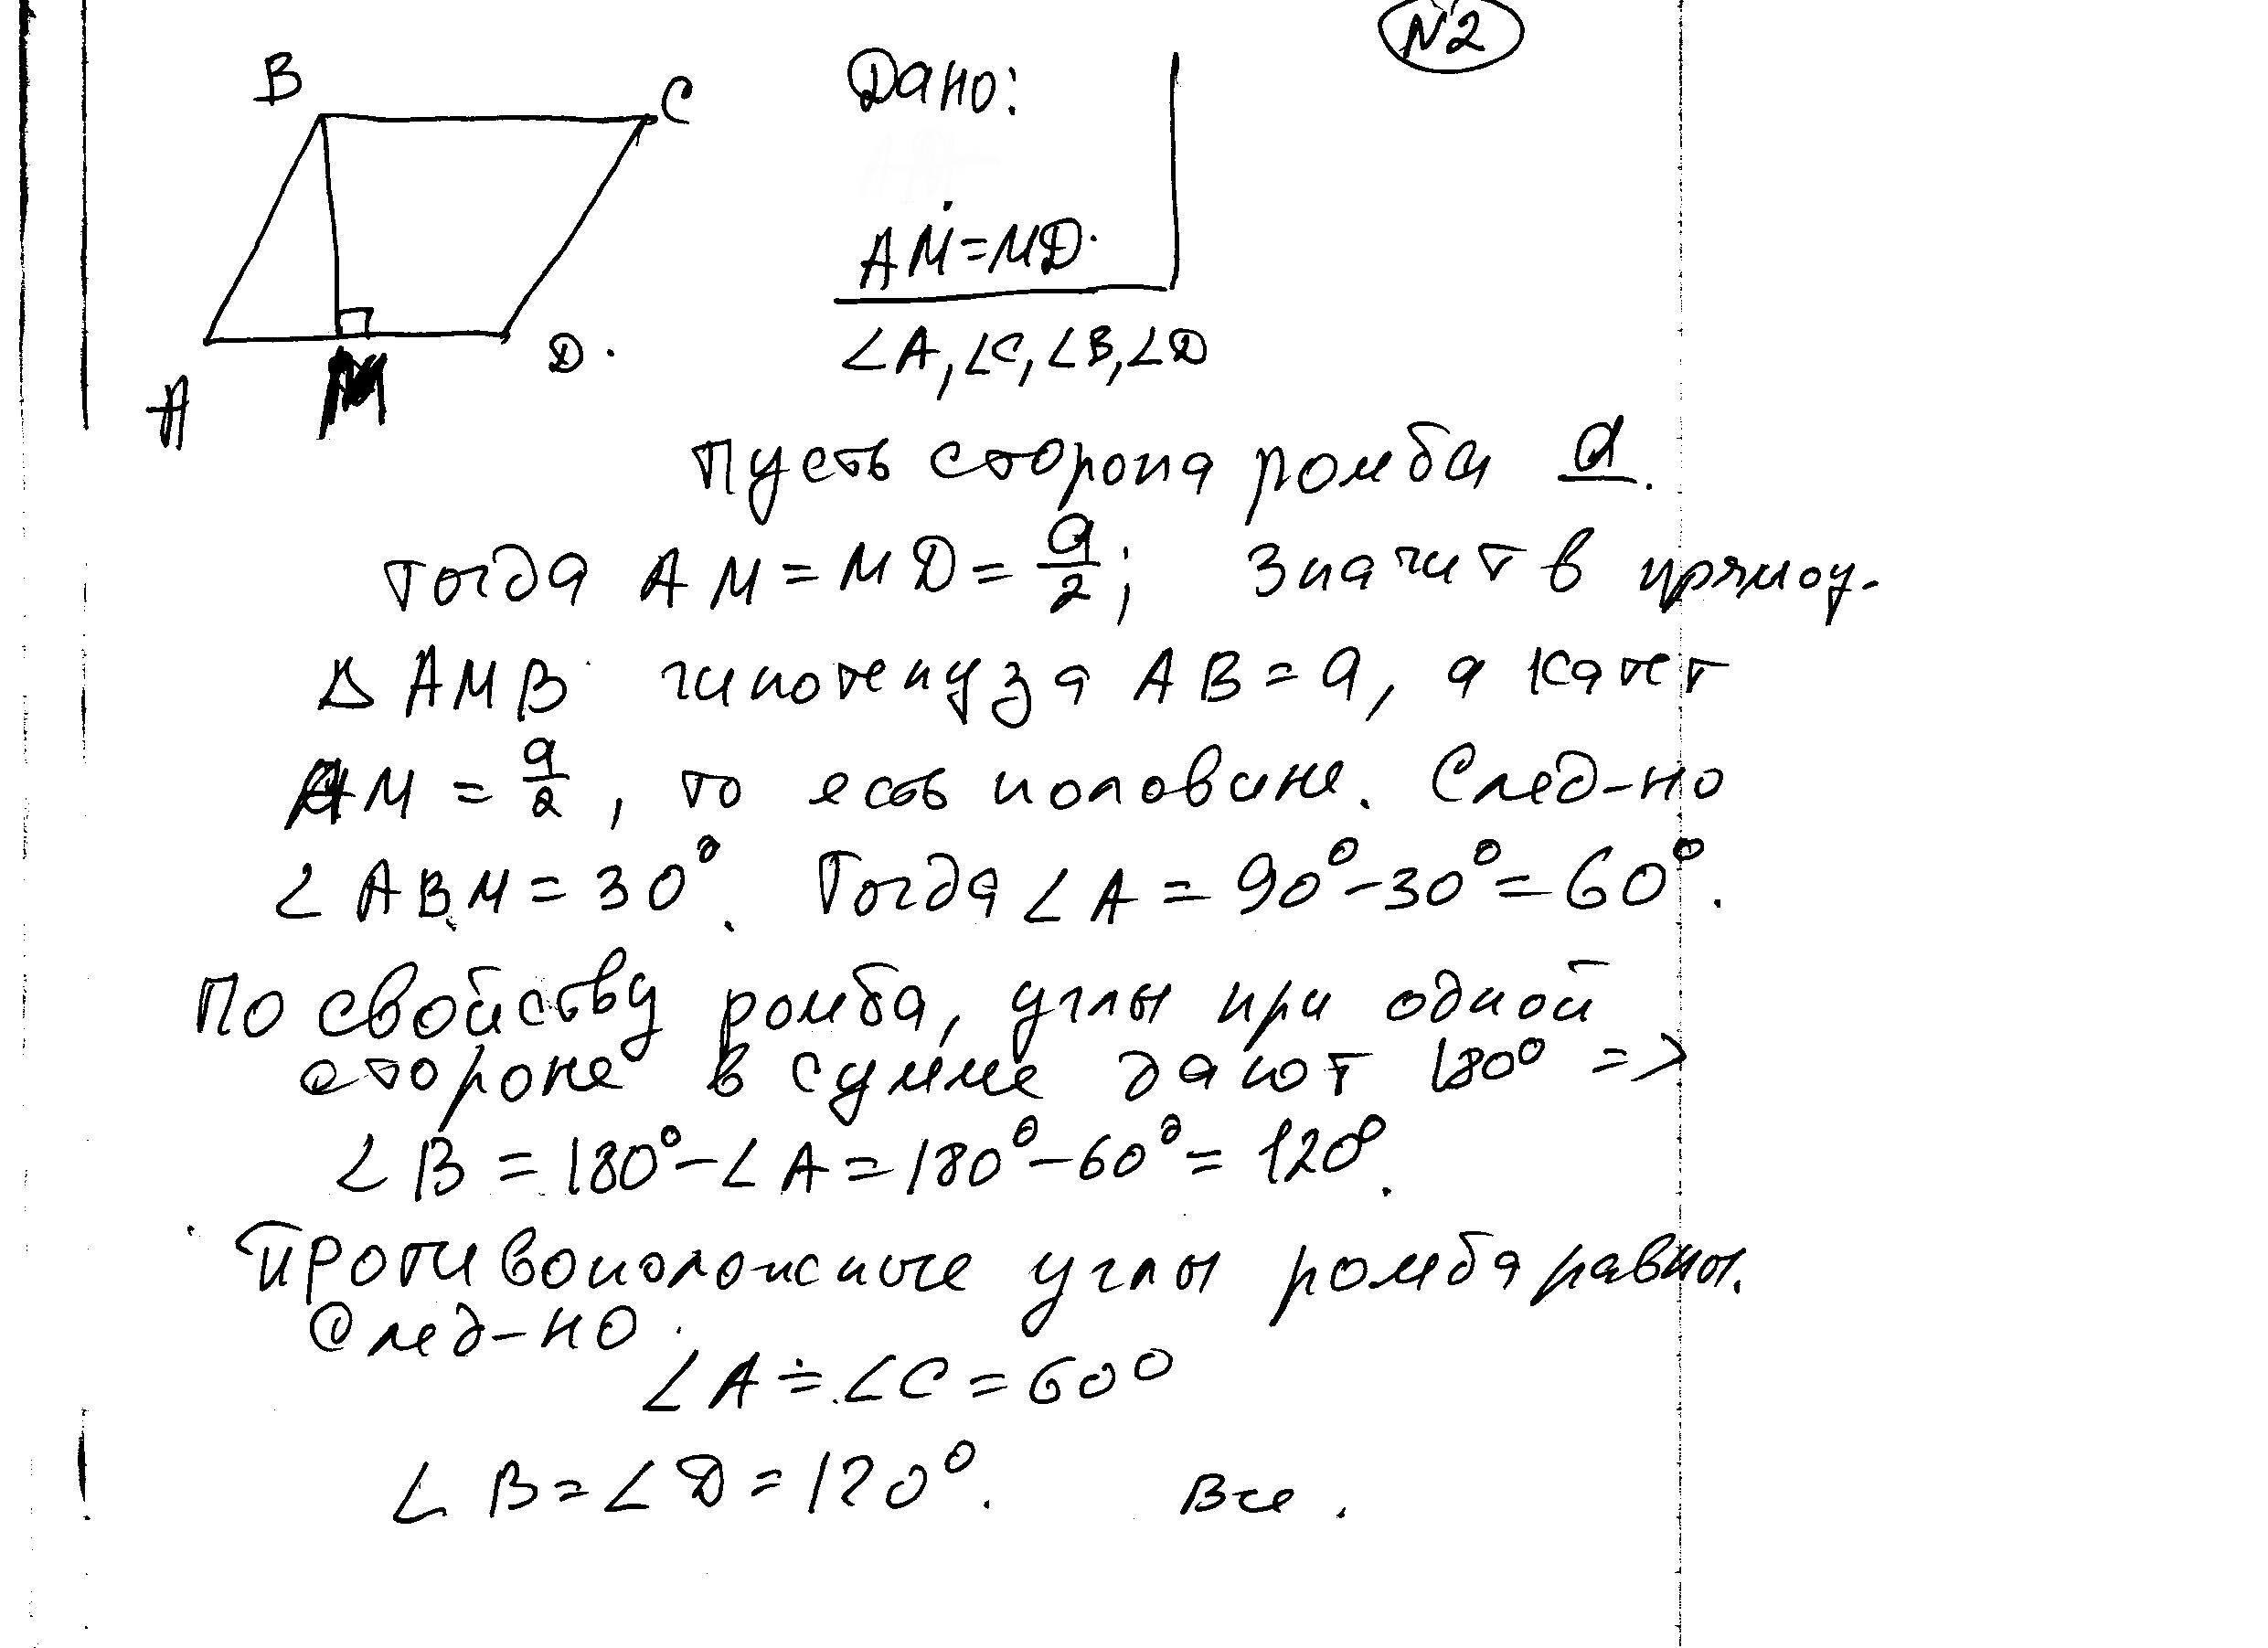 N2
B
C
Дано:
AM=MD.
∠A, ∠C, ∠B, ∠D
A
M
D.
Пусть сторона ромба a.
Тогда AM = MD = a/2; Значит в прямоу.
Δ AMB гипотенуза AB = a, а катет
AM = a/2, то есть половине. След-но
∠ABM = 30°. Тогда ∠A = 90° - 30° = 60°.
По свойству ромба, углы при одной
стороне в сумме дают 180° =>
∠B = 180° - ∠A = 180° - 60° = 120°.
Противоположные углы ромба равны.
След-но
∠A = ∠C = 60°
∠B = ∠D = 120°. Все.